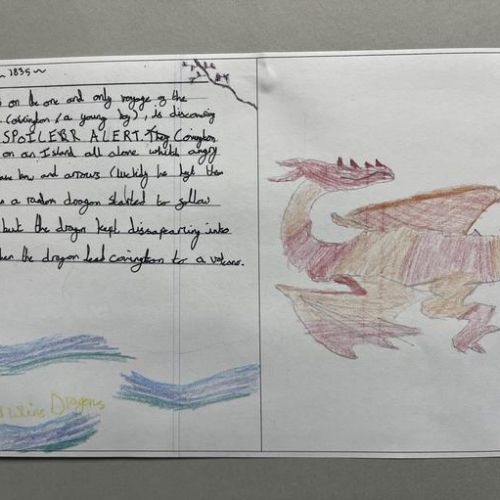 ~ 1835 ~
on the one and only voyage of the
Covington (a young boy), is discovering
SPOILER ALERT. They Covington
on an Island all alone which angry
bow and arrows (luckily he kept them
a random dragon started to follow
but the dragon kept dissapearing into
the dragon lead covington to a volcano.
Dragons